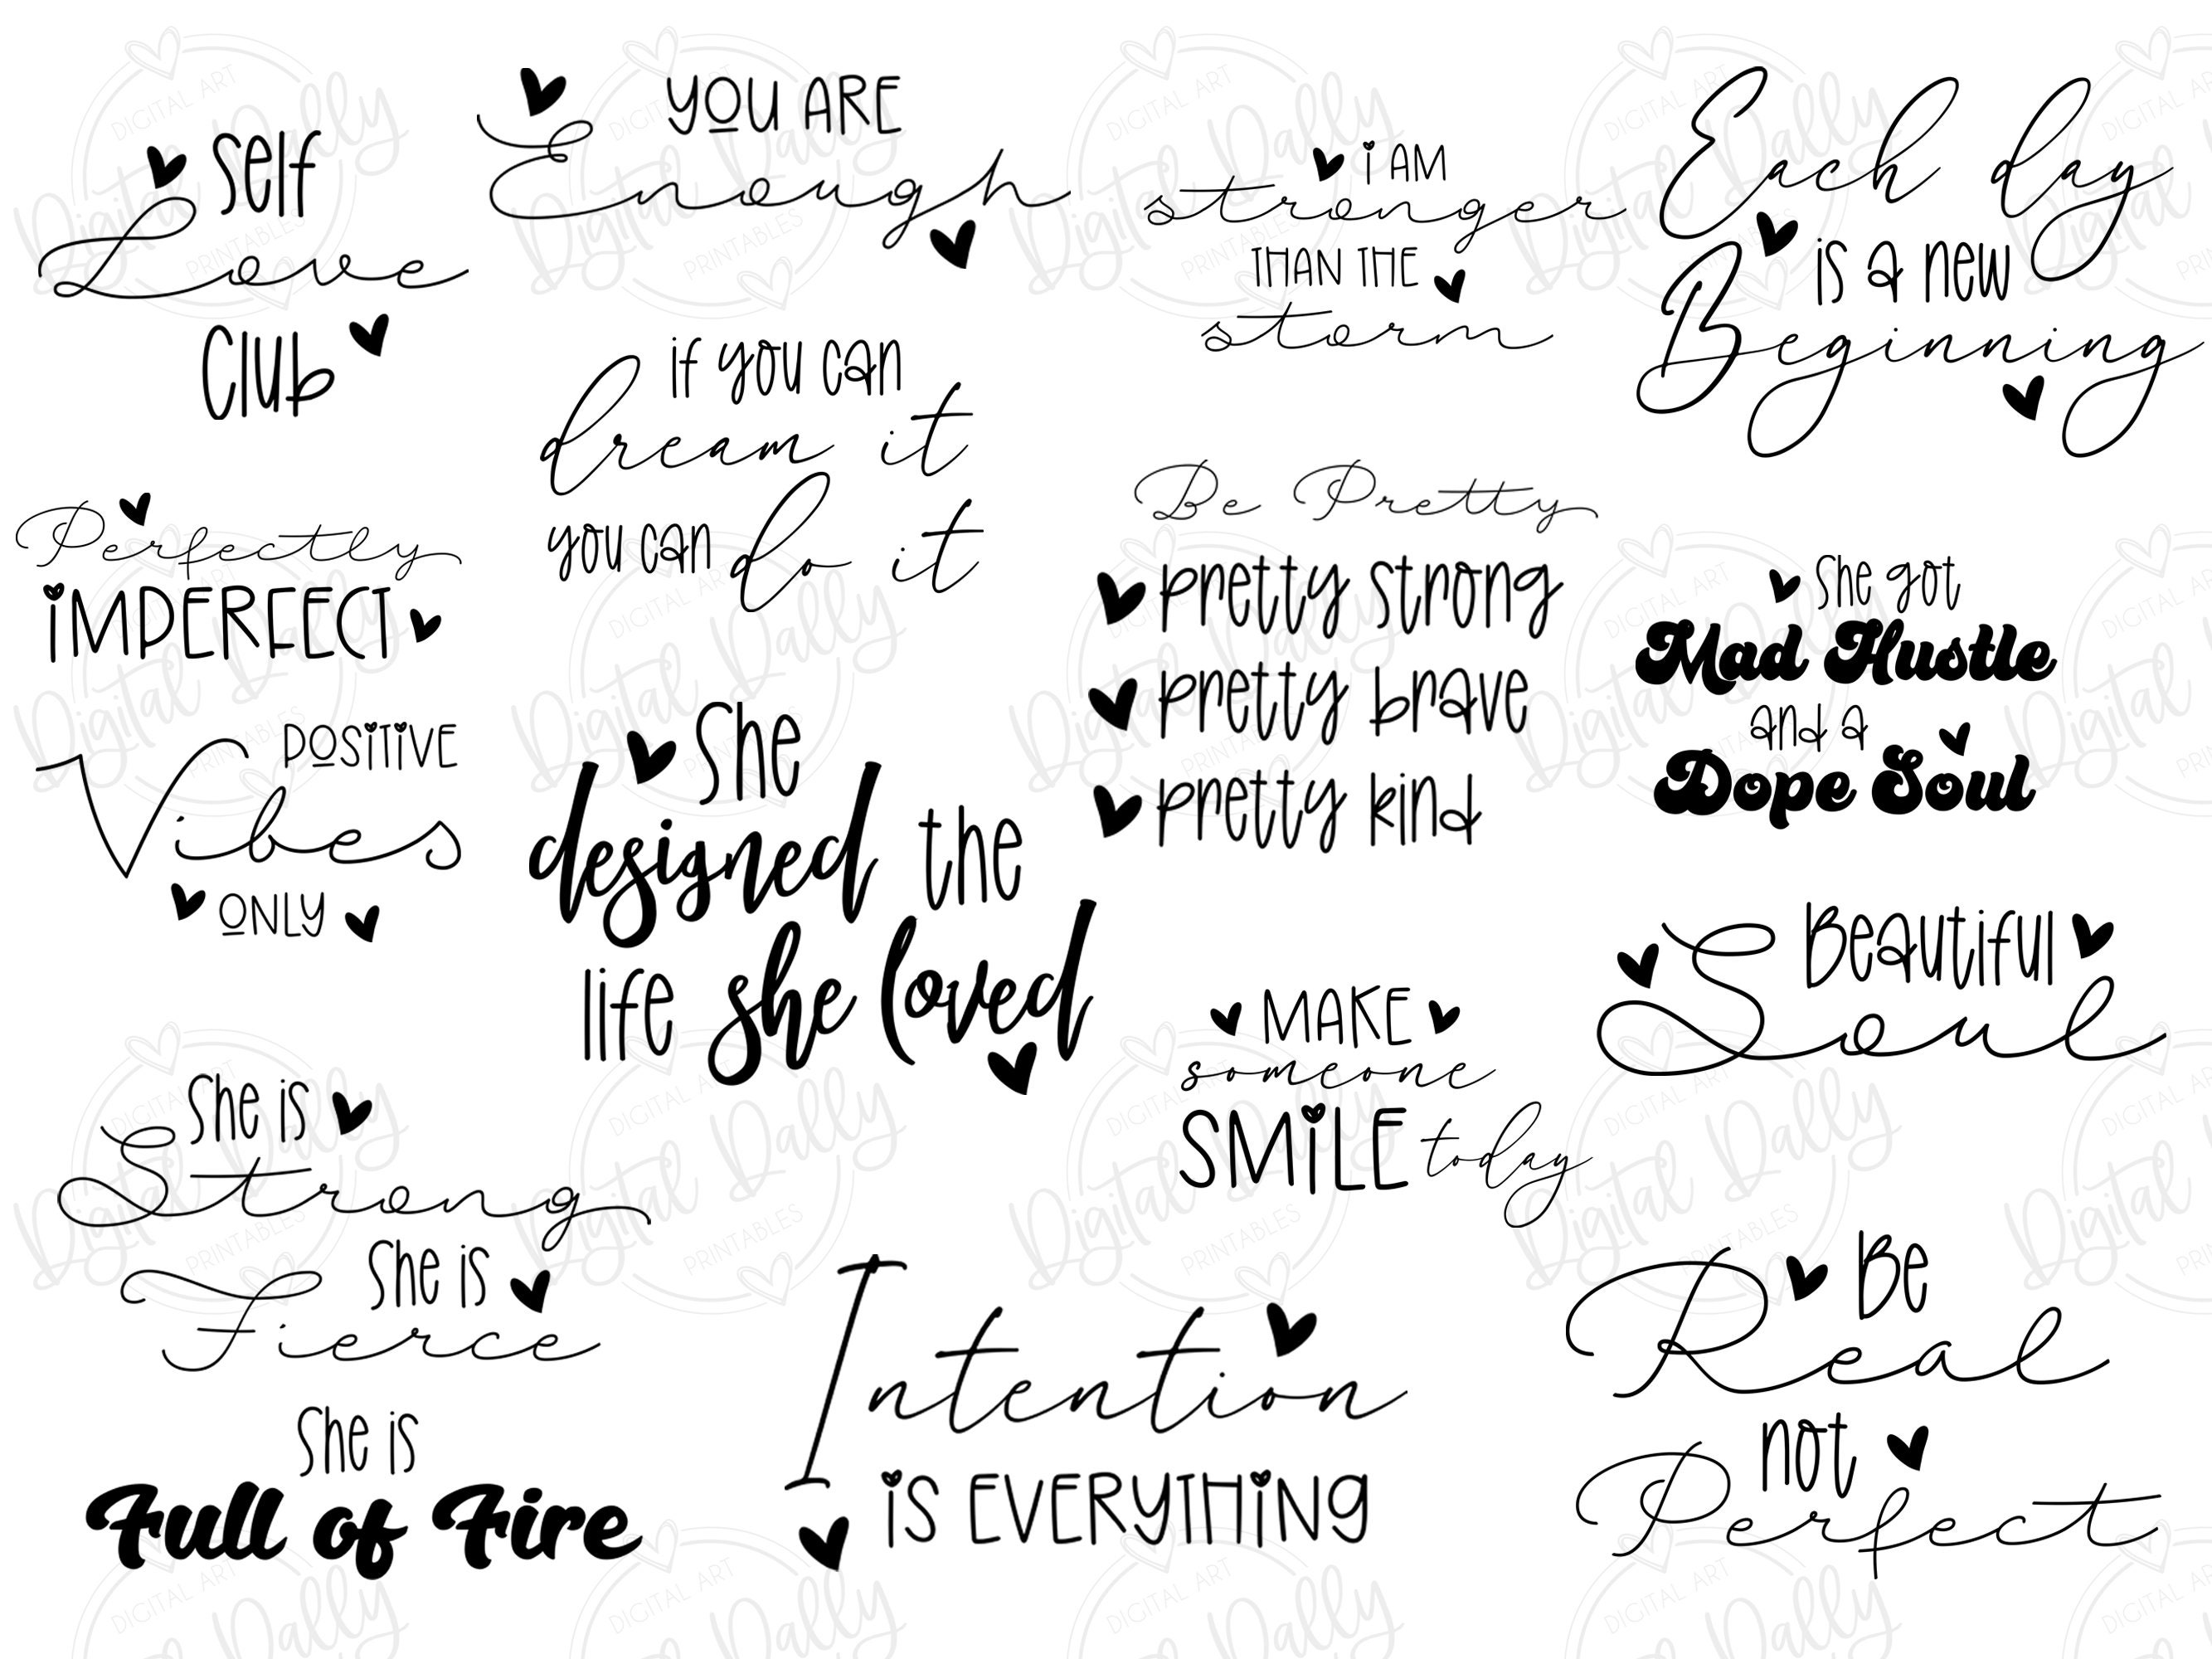 self
Love
Club
YOU ARE
Enough
i AM
stronger
THAN THE
storm
Each day
is a new
Beginning
if you can
dream it
you can do it
Perfectly
iMPERFECT
Be Pretty
pretty strong
pretty brave
pretty kind
she got
Mad Hustle
and a
Dope Soul
POSiTiVE
Vibes
ONLY
she
designed the
life she loved
Beautiful
Soul
MAKE
someone
SMiLE today
she is
Strong
she is
Fierce
she is
Full of Fire
Intention
iS EVERYTHiNG
Be
Real
not
Perfect
DIGITAL ART
Digital Dally
PRINTABLES